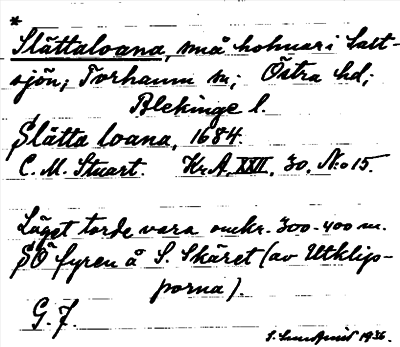 *
Slättaloana, små holmar i Salt-
sjön; Torhamn sn; Östra hd;
Blekinge l.
Slätta loana, 1684.
C. M. Stuart. Kr.A, XXII, 30, N:o 15.
Läget torde vara omkr. 300-400 m.
SO fyren å S. Skäret (av Utklip-
porna).
G. F.
S. 1936.